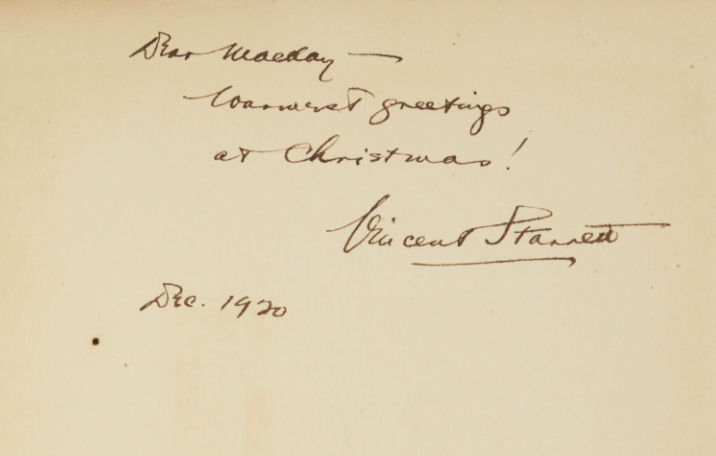 Dear Macday —
Warmest greetings
at Christmas!
Vincent Starrett
Dec. 1920